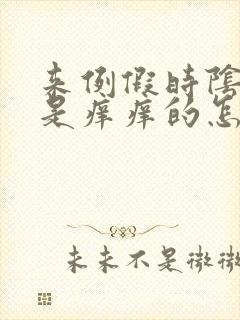 来例假時陰
是痒痒的怎
未来不是微微